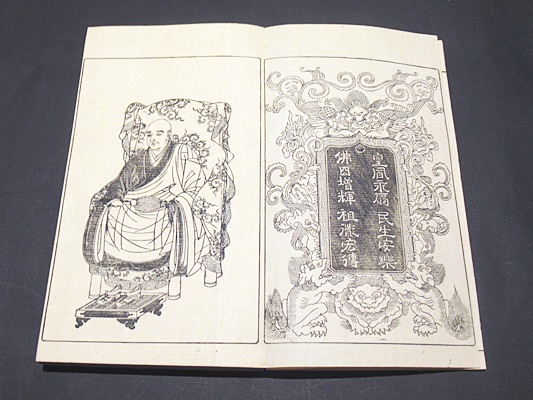 皇風永扇 民生安樂
佛日增輝 祖胤宏傳